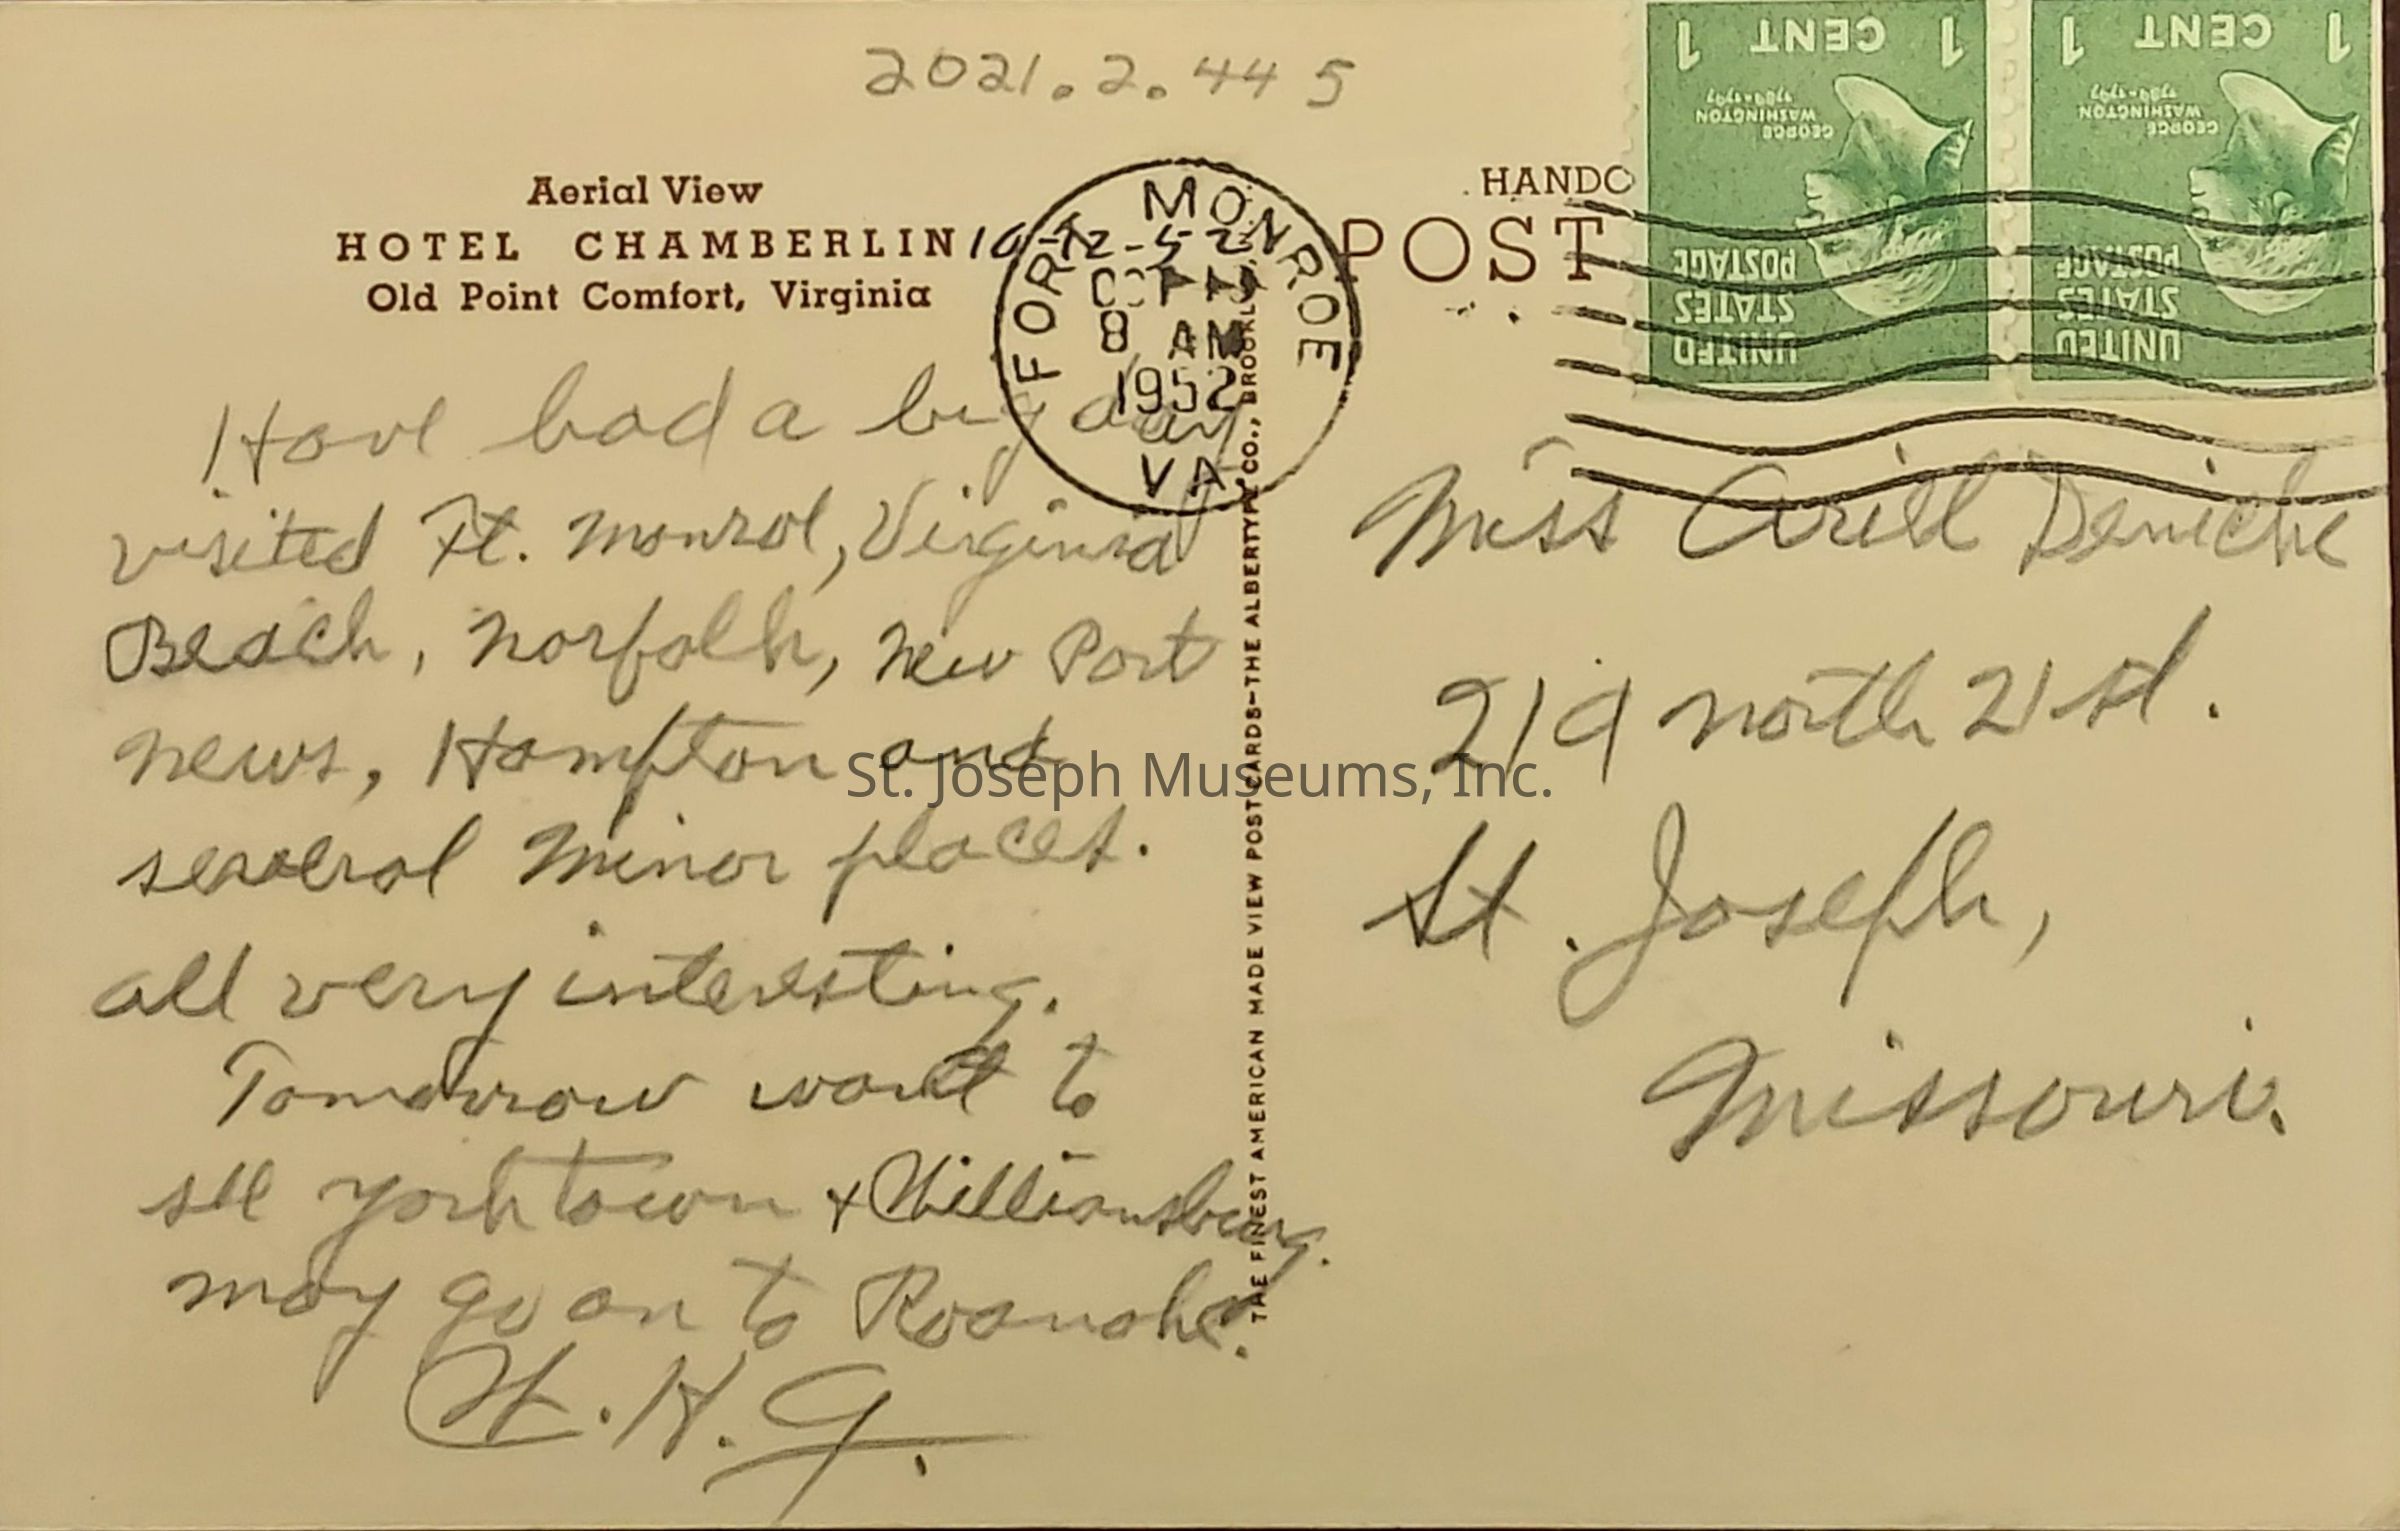 2021.2.445
Aerial View
HOTEL CHAMBERLIN
Old Point Comfort, Virginia
10-12-52
FORT MONROE
OCT
8 AM
1952
VA.
HANDC
POST
1 CENT 1
GEORGE
WASHINGTON
1789-1797
UNITED
STATES
POSTAGE
1 CENT 1
GEORGE
WASHINGTON
1789-1797
UNITED
STATES
POSTAGE
Have had a big day
visited Ft. Monroe, Virginia
Beach, Norfolk, New Port
News, Hampton and
several Minor places.
all very interesting.
Tomorrow want to
see Yorktown + Williamsburg.
may go on to Roanoke.
W. H. G.
THE FINEST AMERICAN MADE VIEW POST CARDS—THE ALBERTYPE CO., BROOKLYN,
Miss Ariel
219 North 21 st.
St. Joseph,
Missouri.
St. Joseph Museums, Inc.